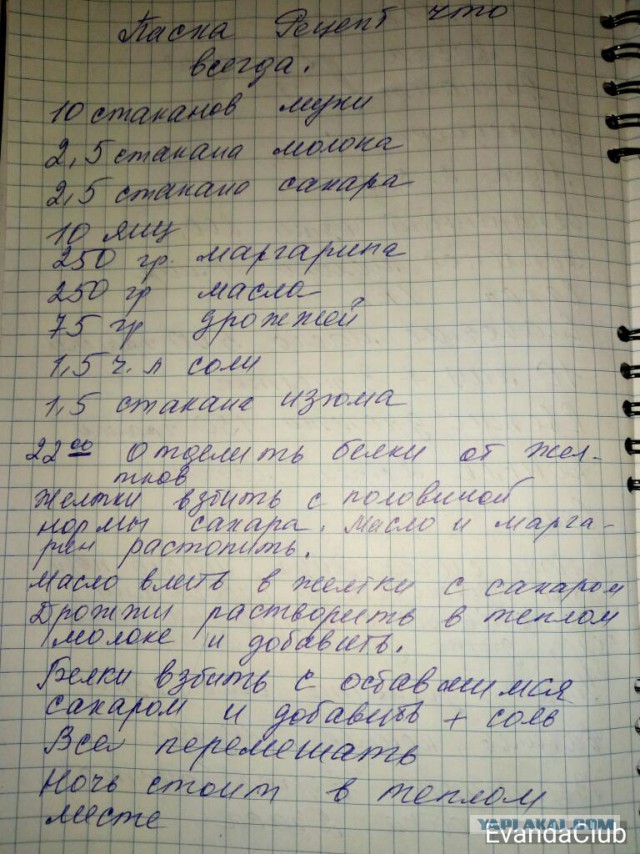 Паска Рецепт что
всегда.
10 стаканов муки
2,5 стакана молока
2,5 стакана сахара
10 яиц
250 гр. маргарина
250 гр масла
75 гр дрожжей
1,5 ч. л соли
1,5 стакана изюма
22 00 Отделить белки от жел-
тков
Желтки взбить с половиной
нормы сахара. Масло и марга-
рин растопить.
Масло влить в желтки с сахаром
Дрожжи растворить в теплом
молоке и добавить.
Белки взбить с оставшимся
сахаром и добавить + соль
Все перемешать
Ночь стоит в теплом
месте
YAPLAKAL.COM
EvandaClub